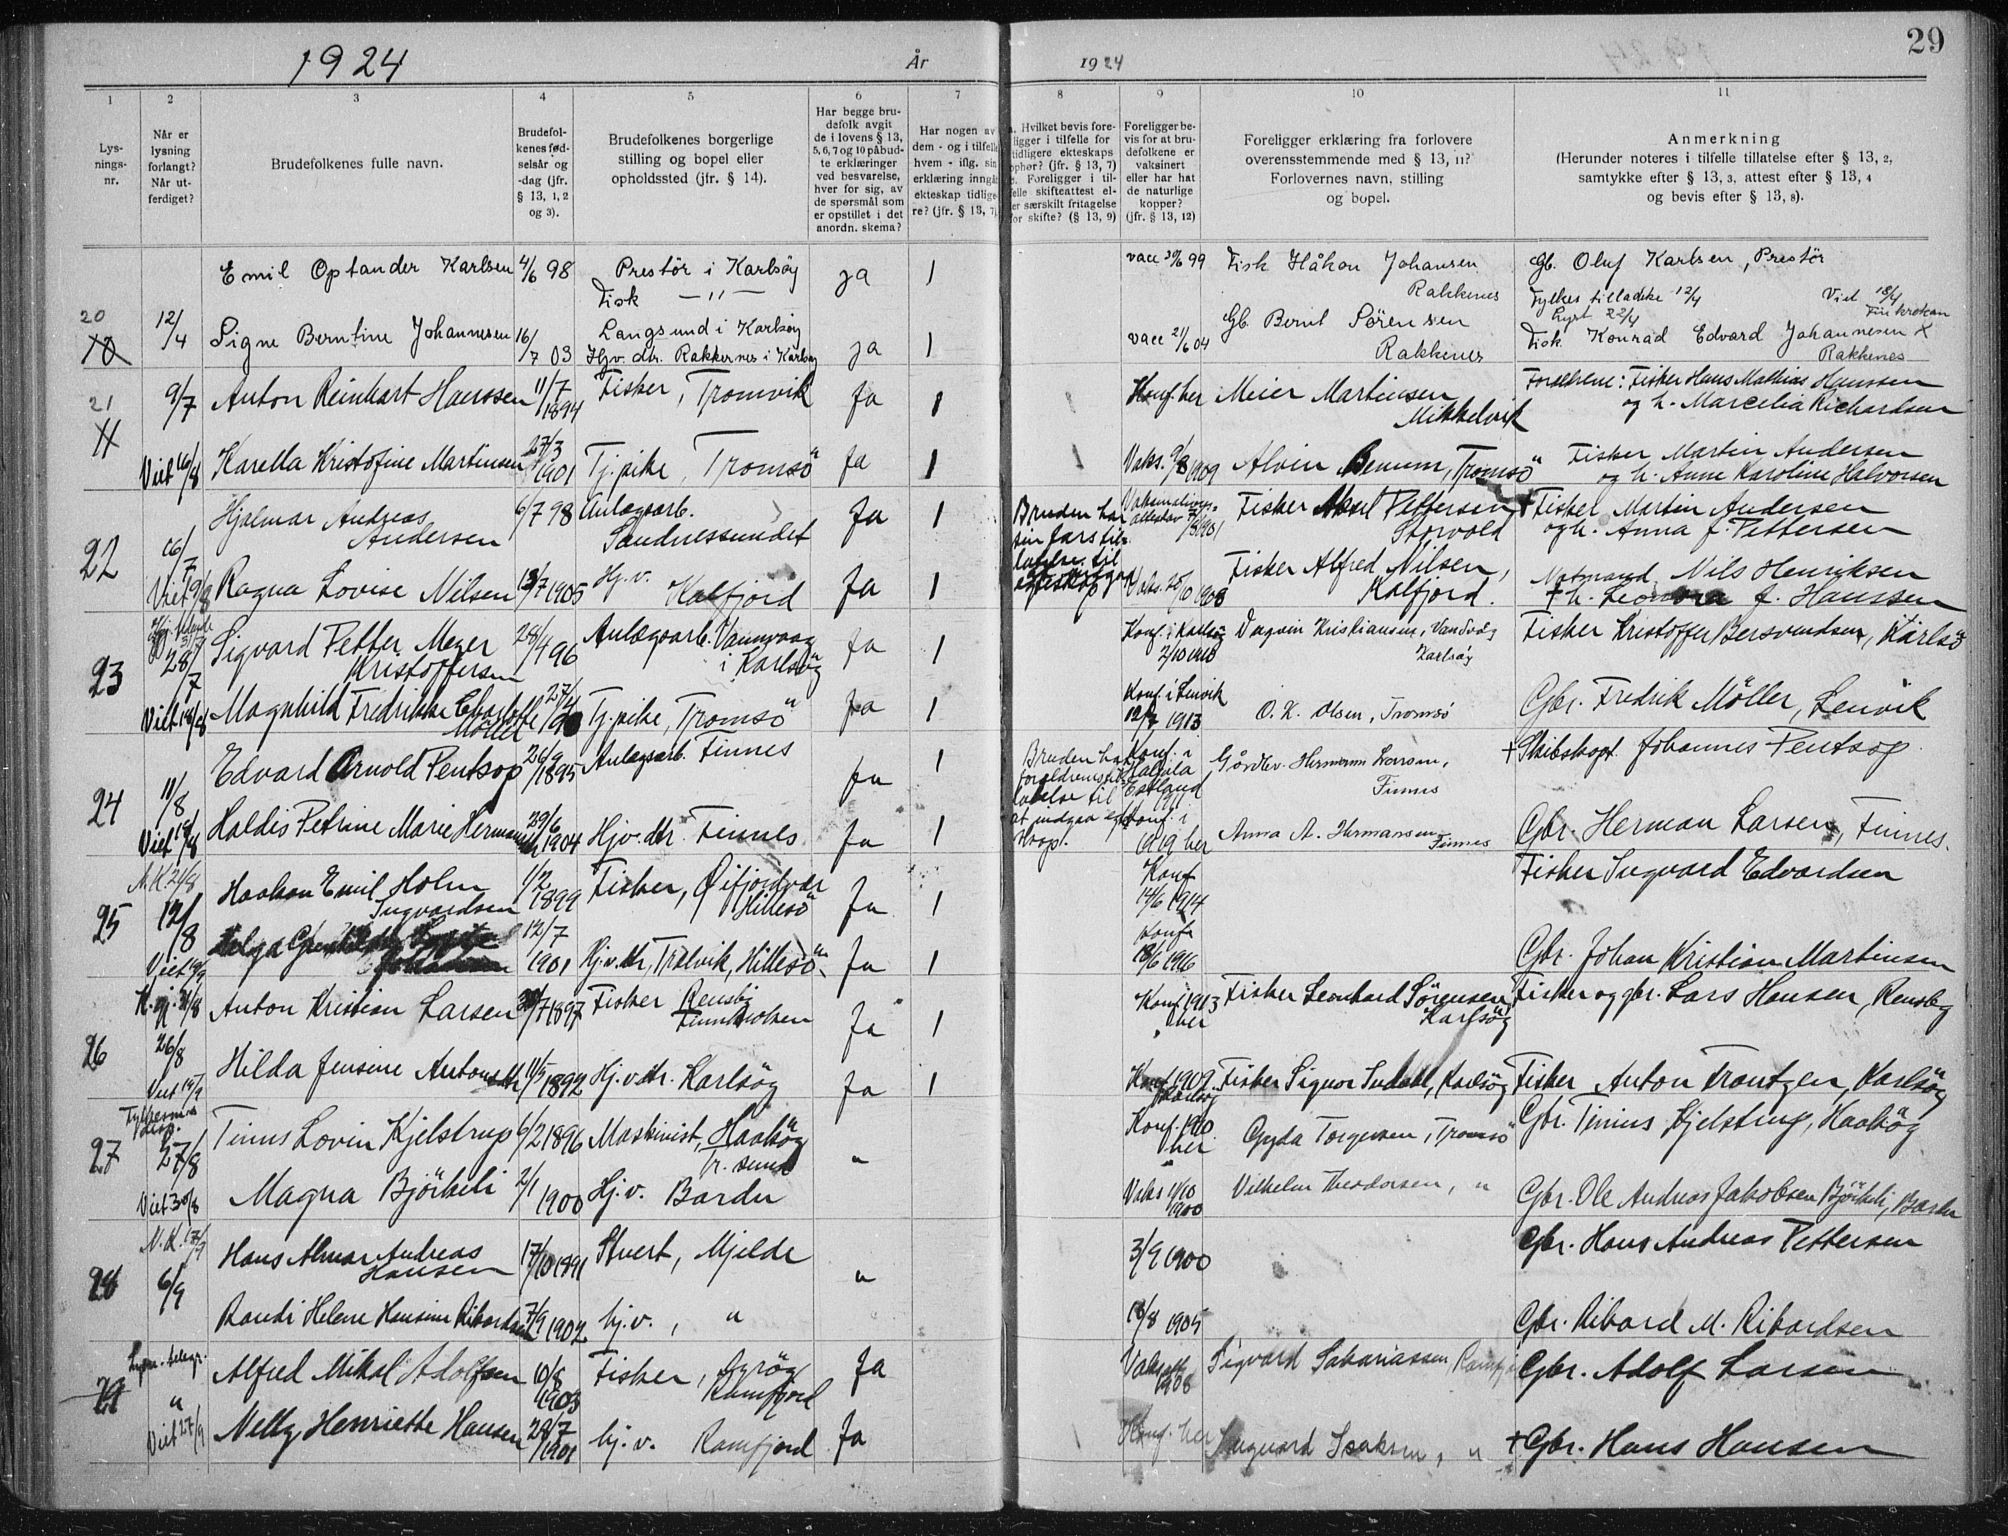 1924
År
1924
29
1
2
3
4
5
6
7
8
9
10
11
Lys-
nings-
nr.
Når er
lysning
forlangt?
Når ut-
ferdiget?
Brudefolkenes fulle navn.
Brudefol-
kenes fød-
selsår og
-dag (jfr.
§ 13, 1, 2
og 3).
Brudefolkenes borgerlige
stilling og bopel eller
opholdssted (jfr. § 14).
Har begge bru-
defolk avgit
de i lovens § 13,
5, 6, 7 og 10 påbud-
te erklæringer
ved besvarelse,
hver for sig, av
de spørsmål som
er opstillet i det
anordn. skema?
Har nogen av
dem - og i tilfelle
hvem - iflg. sin
erklæring inngå
ekteskap tidlige-
re? (jfr. § 13, 7)
a. Hvilket bevis fore-
ligger i tilfelle for
tidligere ekteskaps
ophør? (jfr. § 13, 7)
Foreligger i til-
felle skifteattest el-
er særskilt fritagelse
for skifte? (§ 13, 9)
Foreligger be-
vis for at bru-
defolkene er
vaksinert
eller har hat
de naturlige
kopper?
(jfr. § 13, 12)
Foreligger erklæring fra forlovere
overensstemmende med § 13, 11?
Forlovernes navn, stilling
og bopel.
Anmerkning
(Herunder noteres i tilfelle tillatelse efter § 13, 2,
samtykke efter § 13, 3, attest efter § 13, 4
og bevis efter § 13, 8).
Emil Optander Karlsen 4/6 98 Prestör i Karlsöy ja 1 vacc 30/6 99 Fisk Håkon Johansen Gb. Oluf Karlsen, Prestör
Fisk —"— Rakkenes Fylkes tilladelse 12/4 Viet 18/4
20 12/4 Langsund i Karlsöy Gb. Bernt Sörensen Lyst 22/4
10 Signe Berntine Johannesen 16/7 03 Hjv. dtr. Rakkernes i Karlsöy ja 1 vacc 21/6 04 Rakkenes Fisk. Konrad Edvard Johannesen X
Rakkenes
21 9/7 Anton Reinhart Hanssen 11/7 1894 Fisker, Tromvik Ja 1 Konf. her Meier Martinsen Foreldrene: Fisker Hans Mathias Hanssen
11 Mikkelvik og h. Marcelia Richardsen
Viet 16/8 Karella Kristofine Martinsen 27/3 1901 Tj. pike, Tromsö Ja 1 Vaks. 9/8 1909 Alvin Benum, Tromsö Fisker Martin Andersen
og h. Anne Karoline Halvorsen
Hjalmar Andreas 6/7 98 Anlægsarb. Ja 1 Bruden har Fisker Aksel Pettersen + Fisker Martin Andersen
22 16/7 Andersen Sandnessundet sin fars til- Storvold og h. Anna f. Pettersen
Viet 9/8 Ragna Lovise Nilsen 13/7 1905 Hj. v. Kalfjord Ja 1 Fisker Alfred Nilsen, Nils Henriksen
Kalfjord. + h. Leonora f. Hanssen
23 28/7 Sigvard Petter Meyer 28/4 96 Anlægsarb. Vannvaag Ja 1 Konf. i Karlsöy Dagvin Kristiansen, Vandvåg Fisker Kristoffer Bersvendsen, Karlsö
Kristoffersen i Karlsöy 2/10 1910 Karlsöy
Viet 14/8 Magnhild Fredrikke Charlotte 27/4 Tj. pike, Tromsö Ja 1 Konf. i Lenvik O. K. Olsen, Tromsö Gbr. Fredrik Möller, Lenvik
Möller 1913
24 11/8 Edvard Arnold Pentsop 26/9 1895 Anlægsarb. Finnes Ja 1 Bruden har Konf. i Gårdbr. Hermann Larsen, + Skibskapt. Johannes Pentsop
foreldrenes til- Finnes
latelse til Estland
Viet 19/8 Haldis Petrine Marie 29/6 1904 Hjv. dtr. Finnes Ja 1 at indgaa Konf. i Anna A. Hermansen Gbr. Herman Larsen, Finnes.
1919 her Finnes
N. K. 21/8 Haakon Emil Holm 1/2 1899 Fisker, Öifjordvær Ja 1 Konf Fisker Sugvard Edvardsen
25 12/8 Sugvardsen Hillesö 14/6 1914
Viet 19/9 12/7 1901 Hjv. dtr, Trælvik, Hillesö Ja 1 Konf 18/6 1916 Gbr. Johan Kristian Martinsen
Anton Kristian Larsen 7 1897 Fisker Rensby Ja 1 Konf 1913 Fisker Leonhard Sörensen Fisker og gbr. Lars Hansen, Rensby
her Karlsöy
26 26/8 Hilda Jensine 11/5 1892 Hj. v. dtr. Karlsöy Ja 1 Konf 1909 Fisker Signor Karlsöy Fisker Anton Frantzen, Karlsöy
Viet 14/9 Karlsöy
27 27/8 Tinus Lovin Kjelstrup 6/2 1896 Maskinist, Haaköy " Konf. her Gyda Torgersen, Tromsö Gbr. Tinius Kjelstrup, Haaköy
Viet 30/8 Magna Björkeli 2/1 1900 Hj. v. Bardu Vaks 11/10 1900 Vilhelm Theodorsen, " Gbr. Ole Andreas Jakobsen Björkeli, Bardu
N. K. 17/9 Hans Almar Andreas 17/10 1891 Stuert, Mjelde " 3/9 1900 Gbr. Hans Andreas Pettersen
28 6/9 Hansen
Randi Helene Hansine 7/9 1902 hj. v., " 18/8 1905 Gbr. Rikard M. Rikardsen
29 Alfred Mikal Adolfsen 10/8 1903 Fisker, Ja 1908 Sigvard Sakariassen Gbr. Adolf Larsen
" Ramfjord
Viet 27/9 Nelly Henriette Hansen 28/7 1901 hj. v. Ramfjord Ja Konf. her Sugvard Isaksen, " + Gbr. Hans Hansen